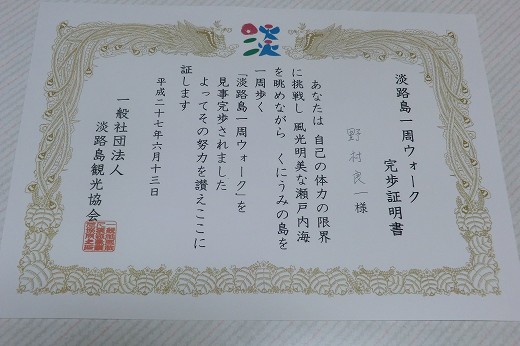 淡
淡路島一周ウォーク
完歩証明書
野村良一様
あなたは 自己の体力の限界
に挑戦し 風光明美な瀬戸内海
を眺めながら くにうみの島を
一周歩く
「淡路島一周ウォーク」を
見事完歩されました
よってその努力を讃えここに
証します
平成二十七年六月十三日
一般社団法人
淡路島観光協会